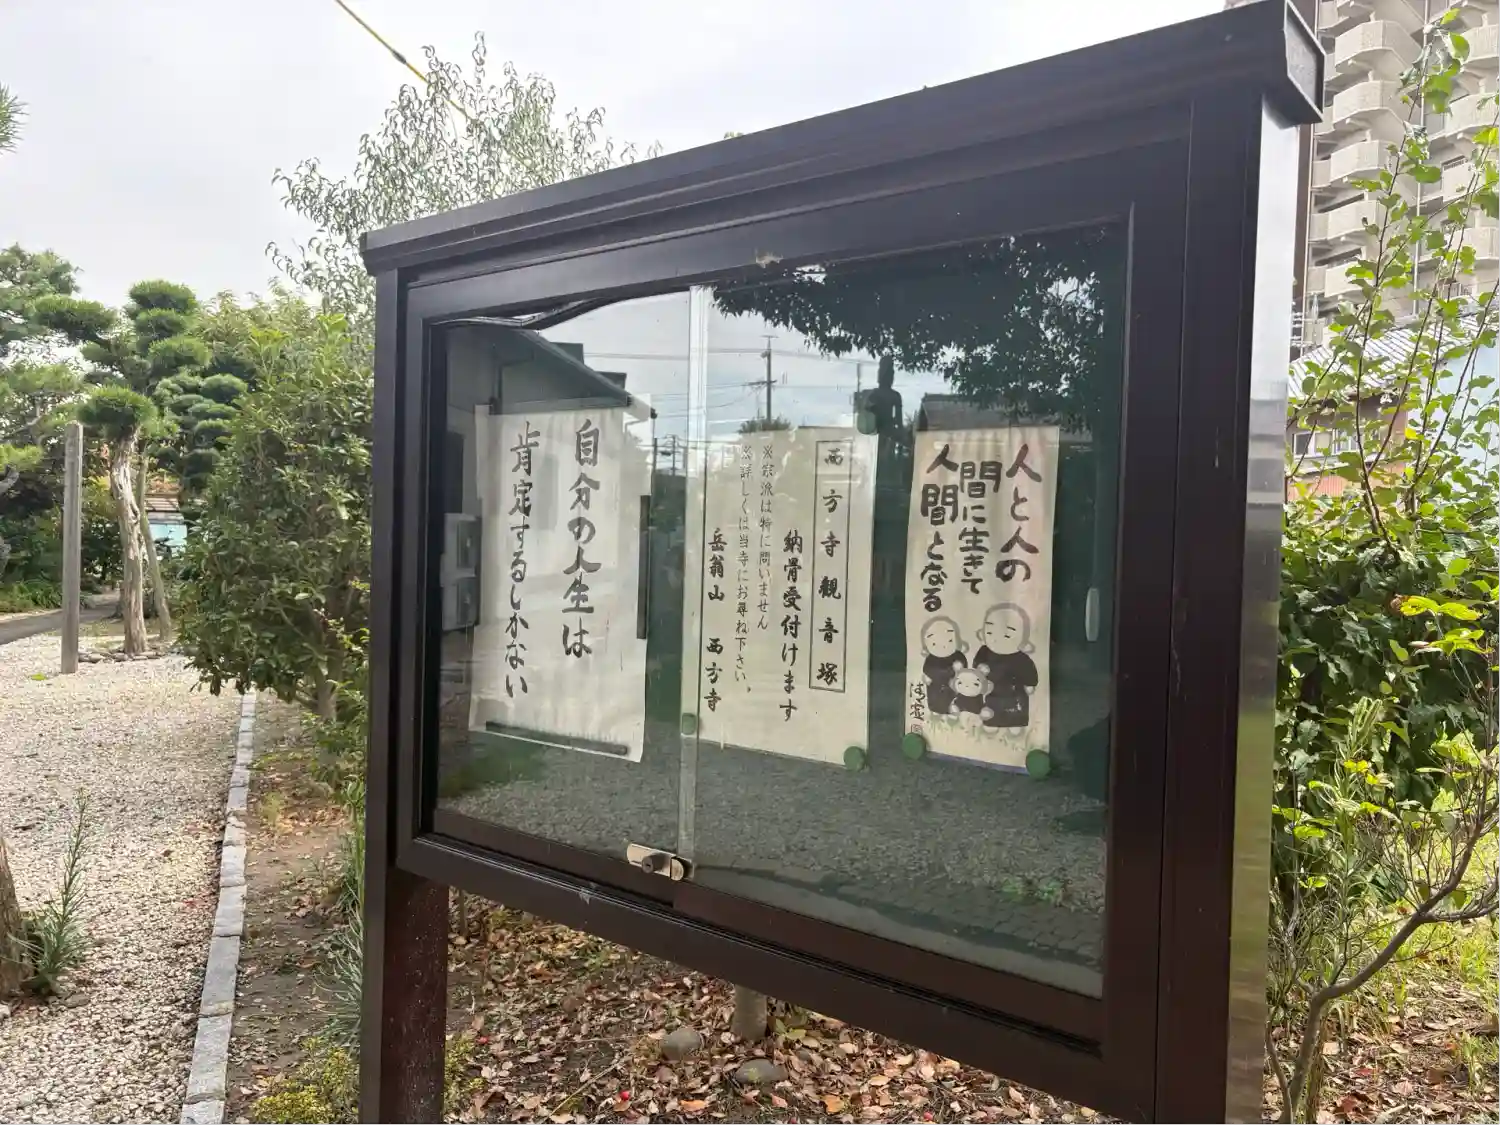 人と人の
間に生きて
人間となる
西方寺観音塚
納骨受付けます
※宗派は特に問いません
※詳しくは当寺にお尋ね下さい。
岳翁山 西方寺
自分の人生は
肯定するしかない